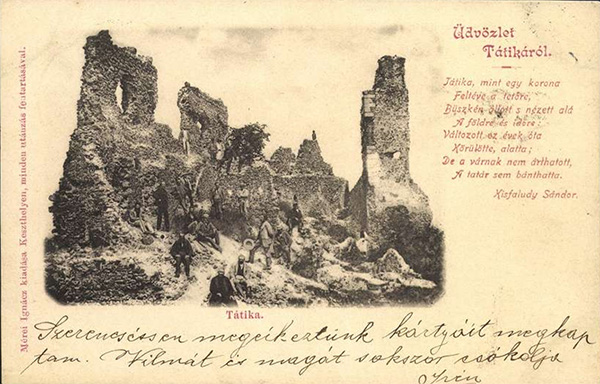 Üdvözlet
Tátikáról.
Tátika, mint egy korona
Feltéve a tetőre,
Büszkén állott s nézett alá
A földre és időre;
Változott ez évek óta
Körülötte, alatta;
De a várnak nem árthatott,
A tatár sem bánthatta.
Kisfaludy Sándor.
Mérei Ignácz kiadása Keszthelyen, minden utánzás fentartásával.
Tátika.
Szerencséssen megérkeztünk kártyáit megkap
tam. Vilmát és magát sokszor csókolja
Irén